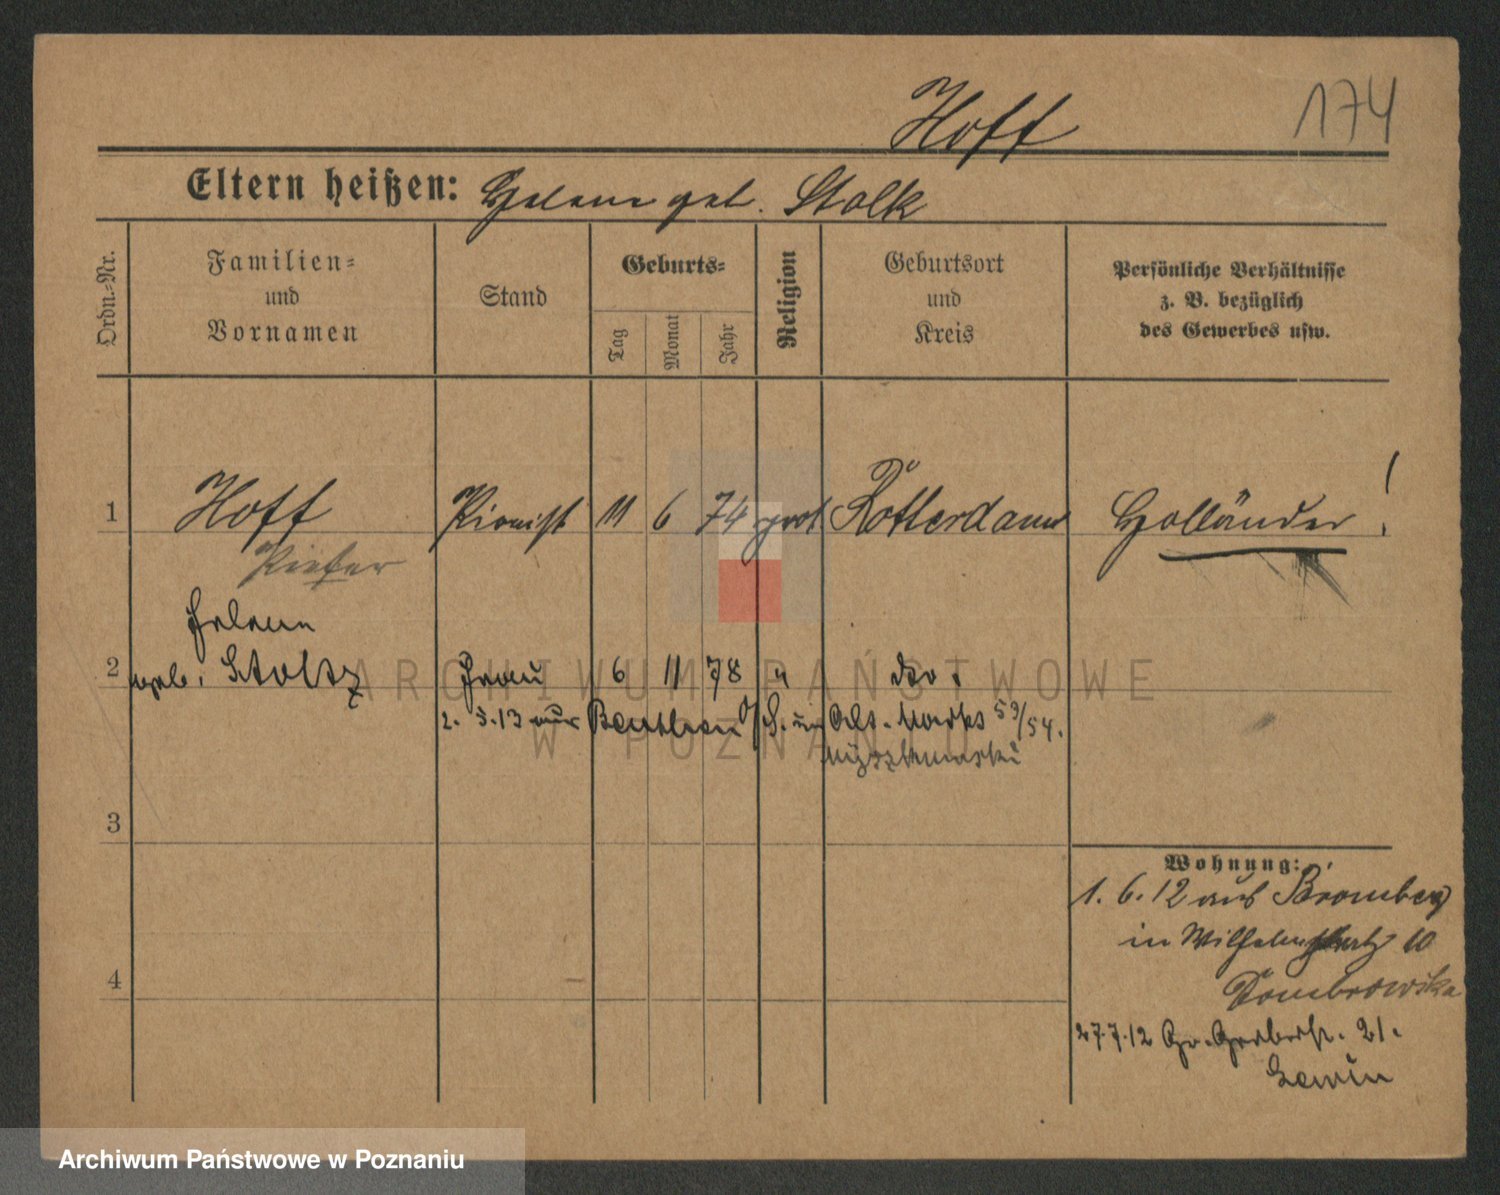 Hoff
174
Eltern heißen: Helene geb. Stolk
Ordn.-Nr.
Familien-
und
Vornamen
Stand
Geburts-
Tag
Monat
Jahr
Religion
Geburtsort
und
Kreis
Persönliche Verhältnisse
z. B. bezüglich
des Gewerbes usw.
1 Hoff Pianist 11 6 74 prot Rotterdam Holländer !
Pieter
Helene
2 geb. Stoltz Frau 6 11 78 " dto.
2. 5. 13 aus Beuthen O/S. in Alt. Markt 53/54.
3
Wohnung:
1. 6. 12 aus Bromberg
in Wilhelmplatz 10
Dombrowska
4
27.7.12 Gr. Gerberstr. 21.
Lewin
ARCHIWUM PAŃSTWOWE
W POZNANIU
Archiwum Państwowe w Poznaniu